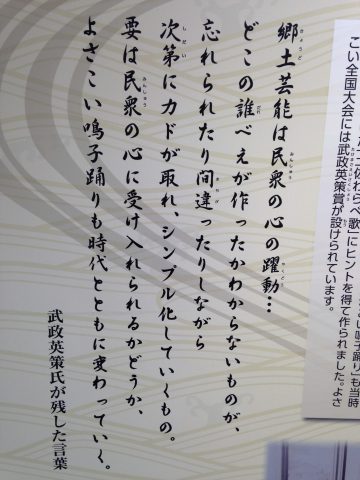 こい全国大会には武政英策賞が設けられています。
わらべ歌」にヒントを得て作られました。よさ
鳴子踊り」も当時
郷土芸能は民衆の心の躍動…
どこの誰べえが作ったかわからないものが、
忘れられたり間違ったりしながら
次第にカドが取れ、シンプル化していくもの。
要は民衆の心に受け入れられるかどうか、
よさこい鳴子踊りも時代とともに変わっていく。
武政英策氏が残した言葉